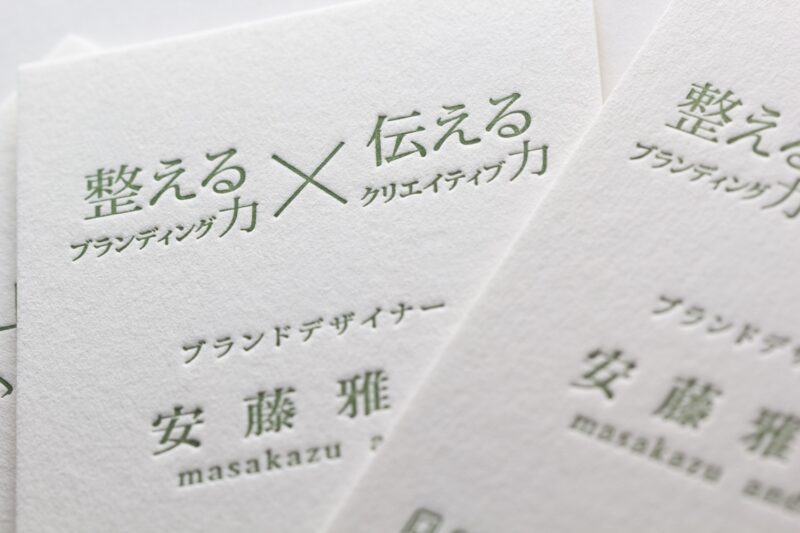 整える × 伝える
ブランディング力 クリエイティブ力
ブランドデザイナー
安藤雅
masakazu a
整える
ブランディング力
ブランドデザ
安藤雅
masakazu and